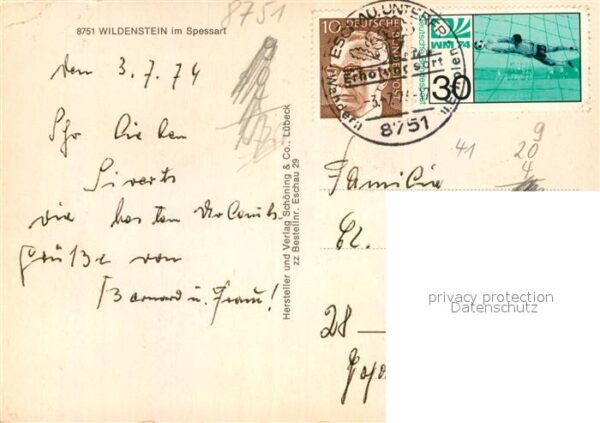 8751
8751 WILDENSTEIN im Spessart
den 3.7.74
Ihr lieben
Siverts
die besten Urlaubs
grüße von
Bernard u. Frau!
Hersteller und Verlag Schöning & Co., Lübeck
zz Bestellnr. Eschau 29
10 DEUTSCHE
BUNDESPOST
WM 74
30
ESCHAU, UNTERER
Erholungsort
-3.-7.74
Wandern
8751
9
41 20
4
Familie
Cl.
28
privacy protection
Datenschutz